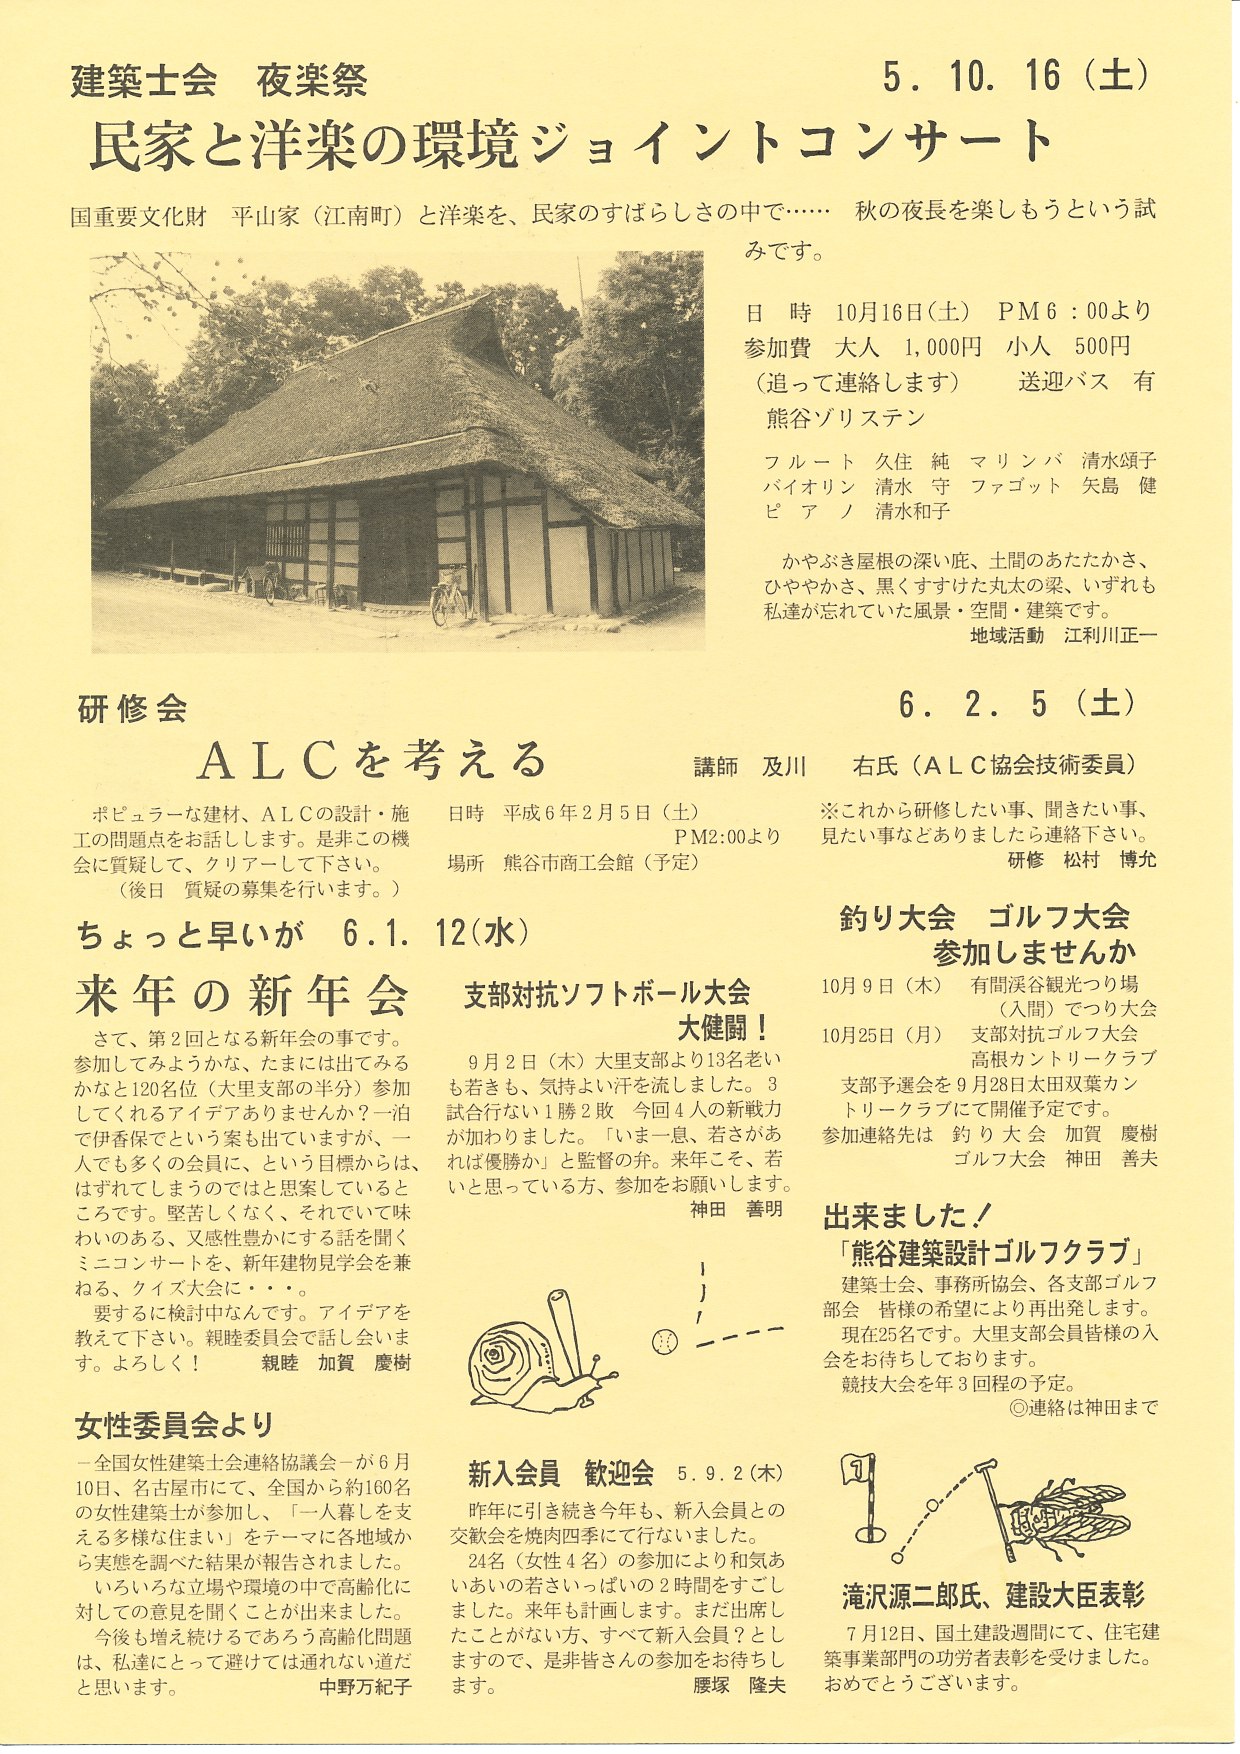 建築士会　夜楽祭
5. 10. 16 (土)
民家と洋楽の環境ジョイントコンサート
国重要文化財　平山家（江南町）と洋楽を、民家のすばらしさの中で……　秋の夜長を楽しもうという試
みです。
日　時　10月16日(土)　ＰＭ６：00より
参加費　大人　1,000円　小人　500円
（追って連絡します）　　送迎バス　有
熊谷ゾリステン
フルート　久住　純　マリンバ　清水頌子
バイオリン　清水　守　ファゴット　矢島　健
ピアノ　清水和子
かやぶき屋根の深い庇、土間のあたたかさ、
ひややかさ、黒くすすけた丸太の梁、いずれも
私達が忘れていた風景・空間・建築です。
地域活動　江利川正一
研修会
6. 2. 5 (土)
ＡＬＣを考える
講師　及川　　右氏（ＡＬＣ協会技術委員）
ポピュラーな建材、ＡＬＣの設計・施
工の問題点をお話しします。是非この機
会に質疑して、クリアーして下さい。
（後日　質疑の募集を行います。）
日時　平成６年２月５日（土）
ＰＭ2:00より
場所　熊谷市商工会館（予定）
※これから研修したい事、聞きたい事、
見たい事などありましたら連絡下さい。
研修　松村　博允
ちょっと早いが　6.1. 12(水)
来年の新年会
さて、第２回となる新年会の事です。
参加してみようかな、たまには出てみる
かなと120名位（大里支部の半分）参加
してくれるアイデアありませんか？一泊
で伊香保でという案も出ていますが、一
人でも多くの会員に、という目標からは、
はずれてしまうのではと思案していると
ころです。堅苦しくなく、それでいて味
わいのある、又感性豊かにする話を聞く
ミニコンサートを、新年建物見学会を兼
ねる、クイズ大会に・・・。
要するに検討中なんです。アイデアを
教えて下さい。親睦委員会で話し会いま
す。よろしく！　　　親睦　加賀　慶樹
女性委員会より
－全国女性建築士会連絡協議会－が６月
10日、名古屋市にて、全国から約160名
の女性建築士が参加し、「一人暮しを支
える多様な住まい」をテーマに各地域か
ら実態を調べた結果が報告されました。
いろいろな立場や環境の中で高齢化に
対しての意見を聞くことが出来ました。
今後も増え続けるであろう高齢化問題
は、私達にとって避けては通れない道だ
と思います。　　　　　　　中野万紀子
支部対抗ソフトボール大会
大健闘！
９月２日（木）大里支部より13名老い
も若きも、気持よい汗を流しました。３
試合行ない１勝２敗　今回４人の新戦力
が加わりました。「いま一息、若さがあ
れば優勝か」と監督の弁。来年こそ、若
いと思っている方、参加をお願いします。
神田　善明
新入会員　歓迎会　5.9.2(木)
昨年に引き続き今年も、新入会員との
交歓会を焼肉四季にて行ないました。
24名（女性４名）の参加により和気あ
いあいの若さいっぱいの２時間をすごし
ました。来年も計画します。まだ出席し
たことがない方、すべて新入会員？とし
ますので、是非皆さんの参加をお待ちし
ます。　　　　　　　　　　腰塚　隆夫
釣り大会　ゴルフ大会
参加しませんか
10月９日（木）　有間渓谷観光つり場
（入間）でつり大会
10月25日（月）　支部対抗ゴルフ大会
高根カントリークラブ
支部予選会を９月28日太田双葉カン
トリークラブにて開催予定です。
参加連絡先は　釣り大会　加賀　慶樹
ゴルフ大会　神田　善夫
出来ました！
「熊谷建築設計ゴルフクラブ」
建築士会、事務所協会、各支部ゴルフ
部会　皆様の希望により再出発します。
現在25名です。大里支部会員皆様の入
会をお待ちしております。
競技大会を年３回程の予定。
◎連絡は神田まで
滝沢源二郎氏、建設大臣表彰
７月12日、国土建設週間にて、住宅建
築事業部門の功労者表彰を受けました。
おめでとうございます。